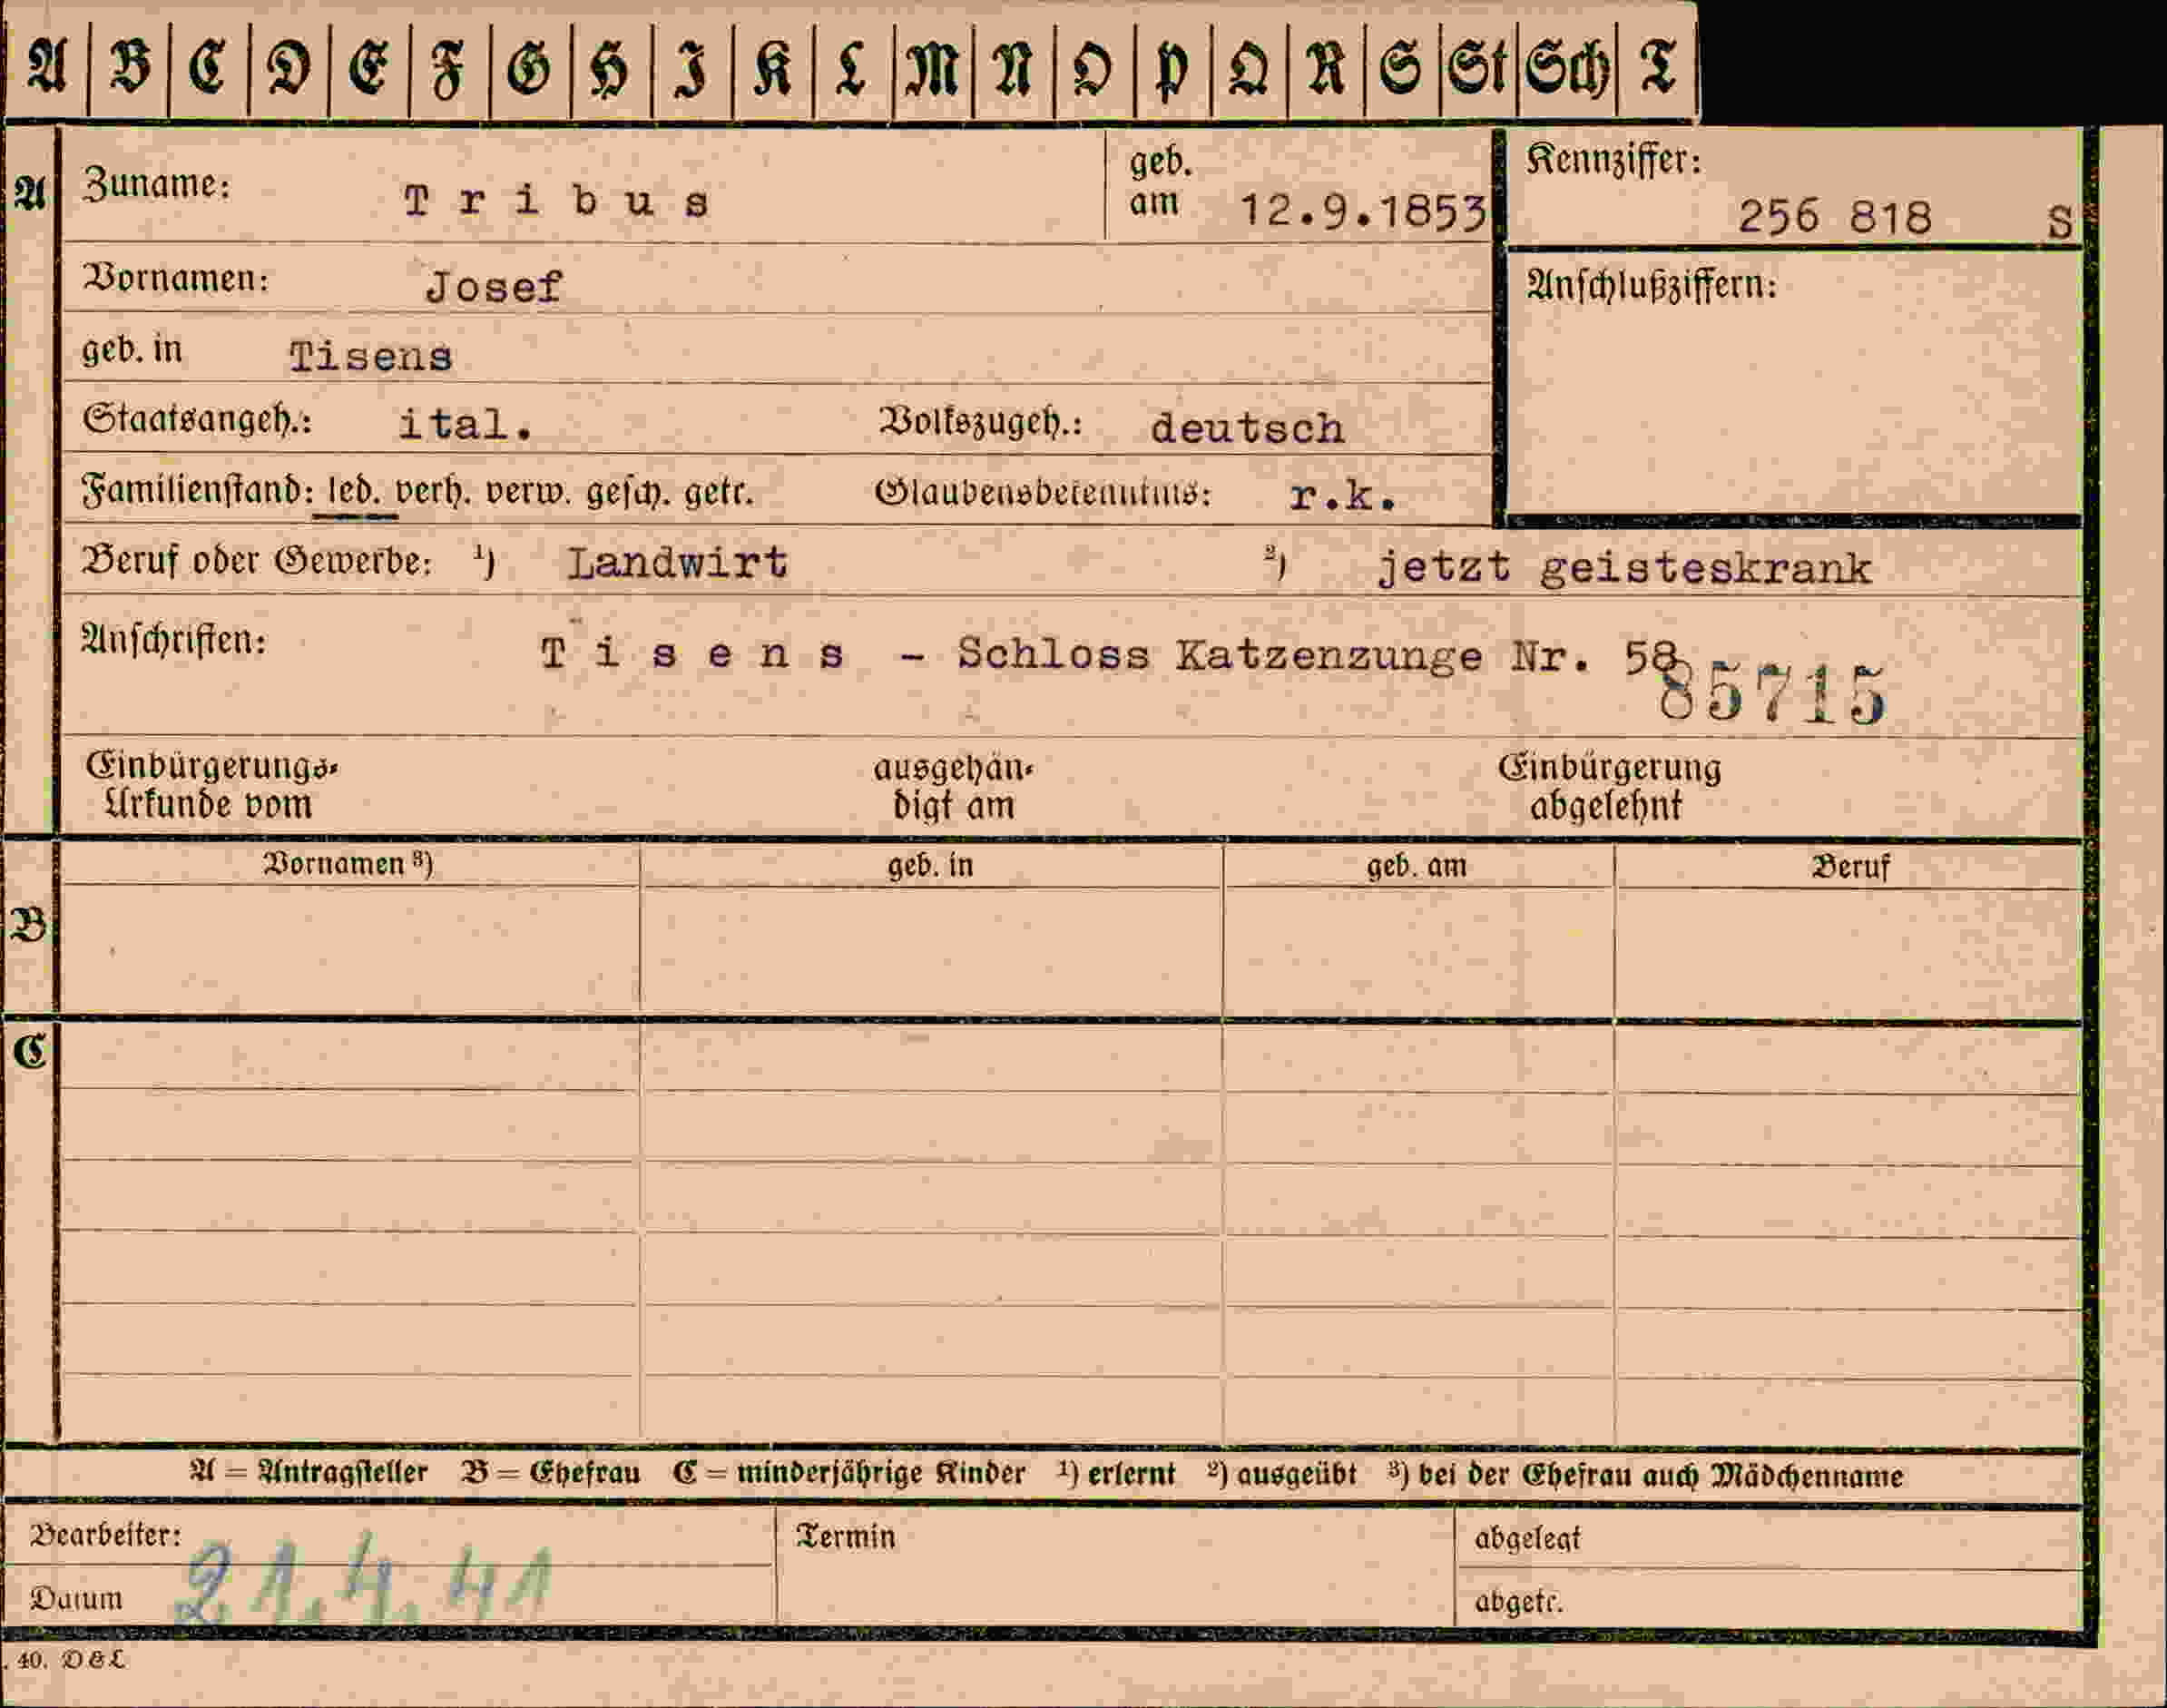 A B C D E F G H I K L M N O P Q R S St Sch T
A Zuname: Tribus geb. am 12.9.1853 Kennziffer: 256 818 S
Vornamen: Josef Anschlußziffern:
geb. in Tisens
Staatsangeh.: ital. Volkszugeh.: deutsch
Familienstand: led. verh. verw. gesch. getr. Glaubensbekenntnis: r.k.
Beruf oder Gewerbe: ¹) Landwirt ²) jetzt geisteskrank
Anschriften: Tisens - Schloss Katzenzunge Nr. 58
85715
Einbürgerungs- ausgehän- Einbürgerung
Urkunde vom digt am abgelehnt
Vornamen ³) geb. in geb. am Beruf
B
C
A = Antragsteller B = Ehefrau C = minderjährige Kinder ¹) erlernt ²) ausgeübt ³) bei der Ehefrau auch Mädchenname
Bearbeiter: Termin abgelegt
Datum 21.4.41 abgetr.
. 40. D & L